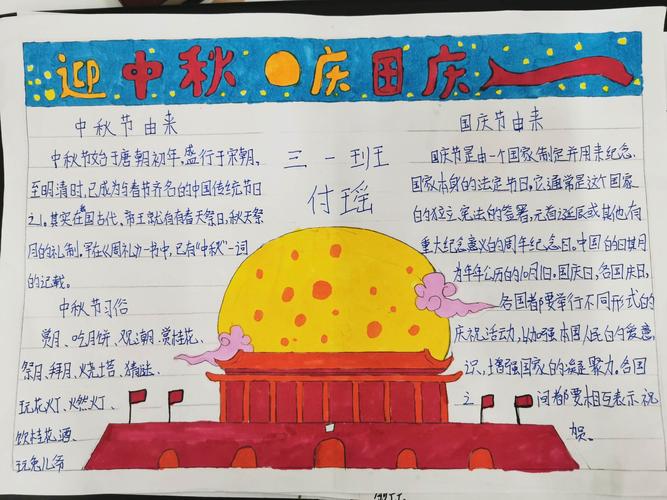 迎中秋 庆国庆
中秋节由来
中秋节始于唐朝初年,盛行于宋朝,
至明清时,已成为与春节齐名的中国传统节日
之一。其实在国古代、帝王就有春天祭日,秋天祭
月的礼制,早在《周礼》一书中,已有“中秋”一词
的记载。
中秋节习俗
赏月、吃月饼、观潮、赏桂花、
祭月、拜月、烧塔、猜谜、
玩花灯、燃灯、
饮桂花酒、
玩兔儿爷
三一班
付瑶
国庆节由来
国庆节是由一个国家制定并用来纪念
国家本身的法定节日,它通常是这个国家
的独立、宪法的签署,元首诞辰或其他有
重大纪念意义的周年纪念日。中国的日其月
为年年公历的10月1日。国庆日,各国庆日,
各国都要举行不同形式的
庆祝活动,以加强本国人民的爱意
识,增强国家的凝聚力,各国
之间都要相互表示祝
贺。